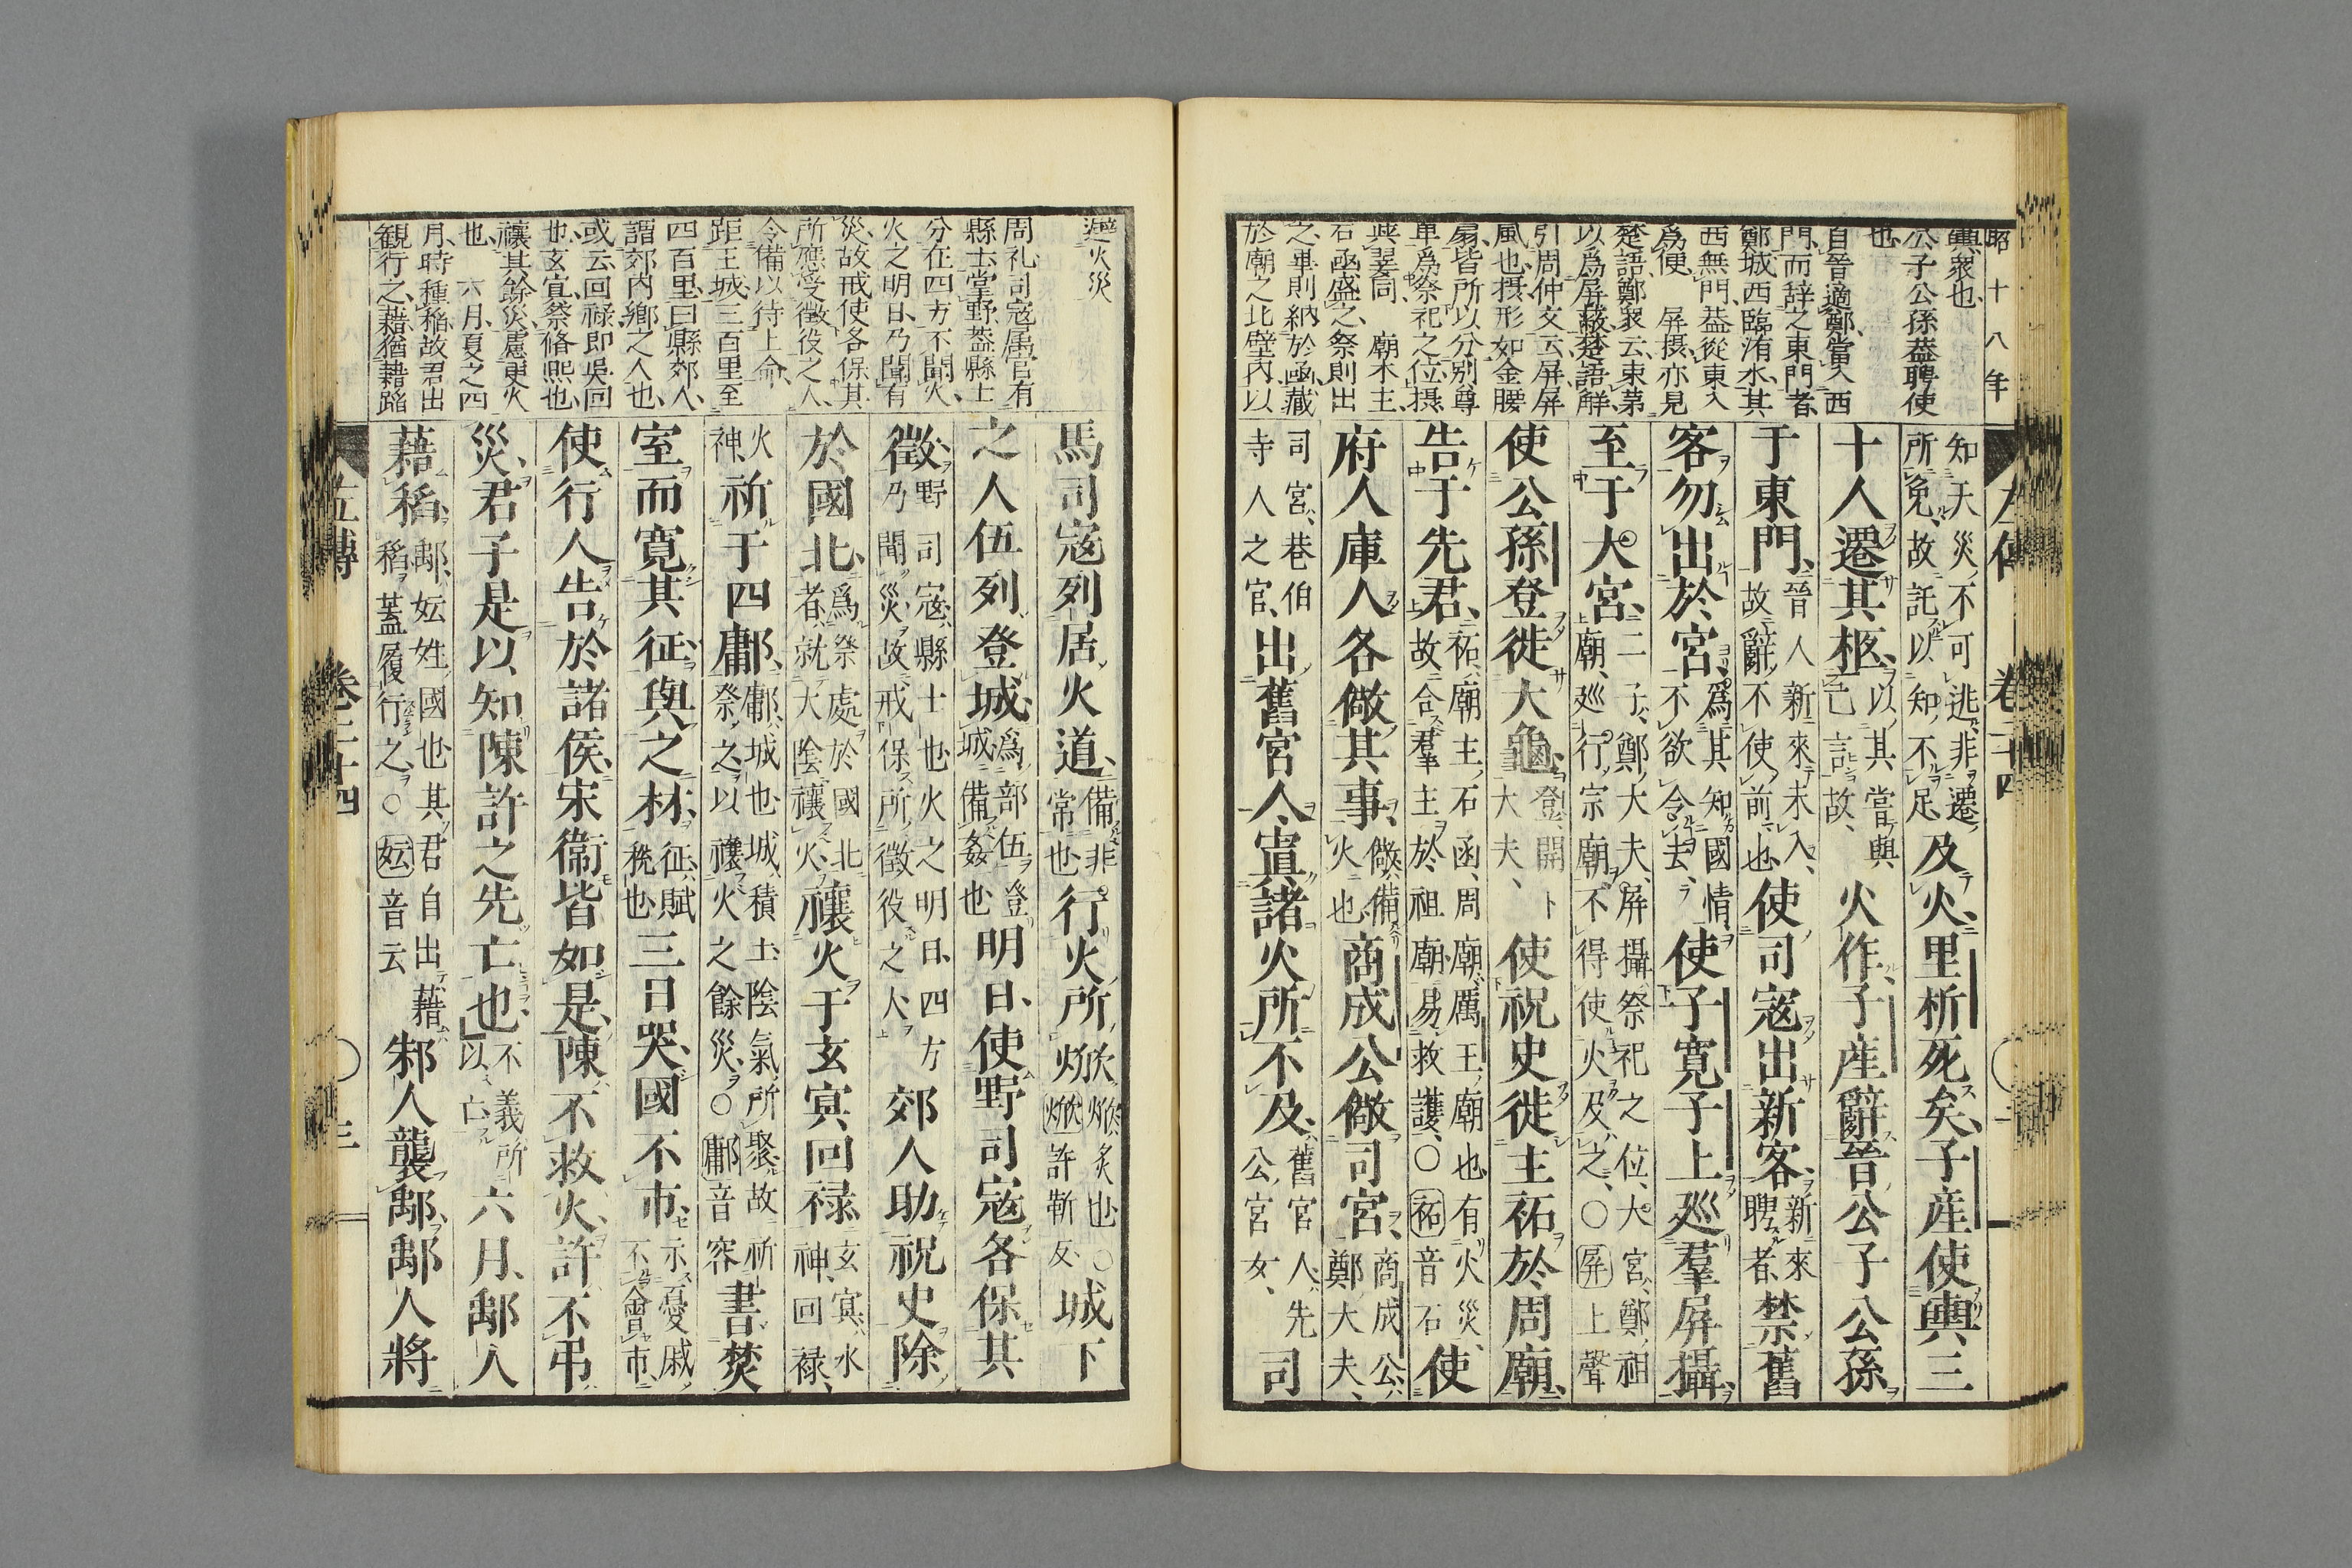 昭十八年
輿衆也
公子公孫葢聘使
也
自晉適鄭當入西
門而辞之東門者
鄭城西臨洧水其
西無門葢從東入
爲便 屏摂亦見
楚語鄭衆云束茅
以爲屏蔽楚語觧
引周仲文云屏屏
風也摂形如金腰
扇皆所以分別尊
卑爲祭祀之位摂
與翣同 廟木主
石函盛之祭則出
之畢則納於函藏
於廟之北壁内以
左傳 卷二十四
知天災不可逃非遷所免故託以知不足及火里析死矣子産使輿三
十人遷其柩以其嘗與已言故火作子産辭晉公子公孫
于東門晉人新來未入故辭不使前也使司宼出新客新來聘者禁舊
客勿出於宮爲其知國情不欲令去使子寛子上廵羣屏攝
至于大宮二子鄭大夫屏攝祭祀之位大宮鄭祖廟廵行宗廟不得使火及之○屏上聲
使公孫登徙大龜登開卜大夫使祝史徙主祏於周廟
告于先君祏廟主石函周廟厲王廟也有火災故合羣主於祖廟易救護○祏音石使
府人庫人各儆其事儆備火也商成公儆司宮商成公鄭大夫
司宮巷伯寺人之官出舊宮人寘諸火所不及舊宮人先公宮女司
避火災
周礼司宼属官有
縣士掌野葢縣士
分在四方不聞火
火之明日乃聞有
災故戒使各保其
所應受徴役之人
令備以待上命
距王城三百里至
四百里曰縣郊人
謂郊内鄕之人也
或云回禄即吳回
也玄宜祭脩熙也
禳其餘災慮更火
也 六月夏之四
月時種稲故君出
観行之藉猶藉蹈
馬司宼列居火道備非常也行火所焮焮炙也○焮許靳反城下
之人伍列登城爲部伍登城備姦也明日使野司宼各保其
徵野司宼縣士也火之明日四方乃聞災故戒保所徵役之人郊人助祝史除
於國北爲祭處於國北者就大陰禳火禳火于玄冥回禄玄冥水神回禄
火神祈于四鄘鄘城也城積土陰氣所聚故祈祭之以禳火之餘災○鄘音容書焚
室而寛其征與之材征賦稅也三日哭國不市示憂戚不會市
使行人告於諸侯宋衞皆如是陳不救火許不弔
災君子是以知陳許之先亡也不義所以亡六月鄅人
藉稻鄅妘姓國也其君自出藉稻蓋履行之○妘音云邾人襲鄅鄅人將
左傳 卷二十四 三